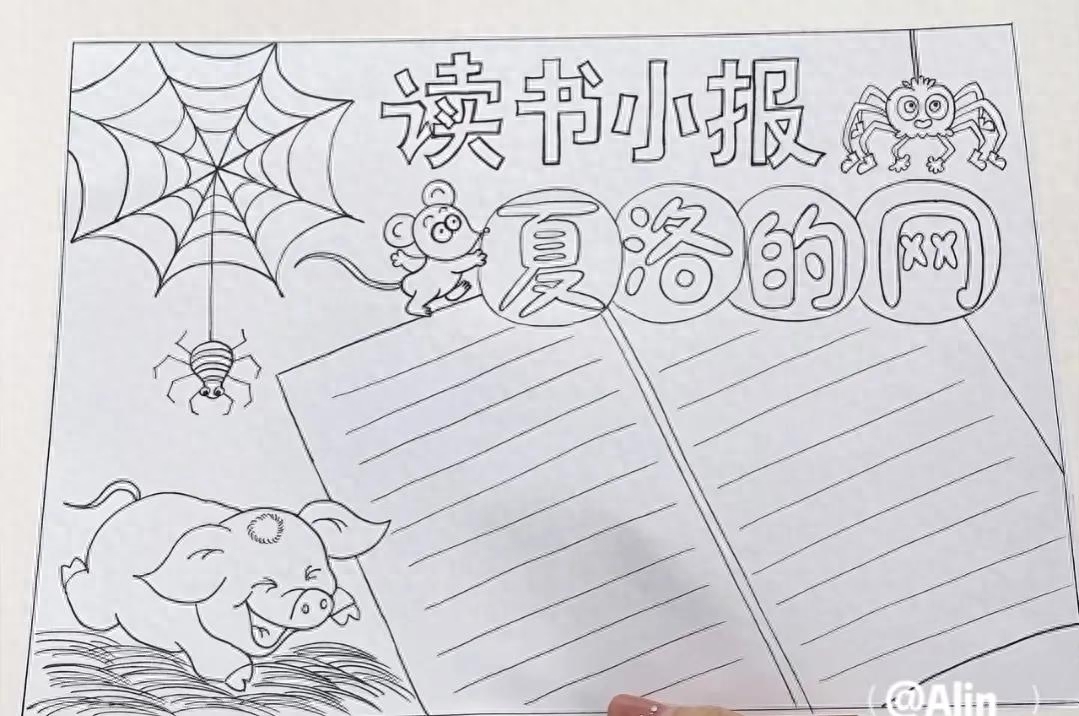 读书小报
夏洛的网
@Alin